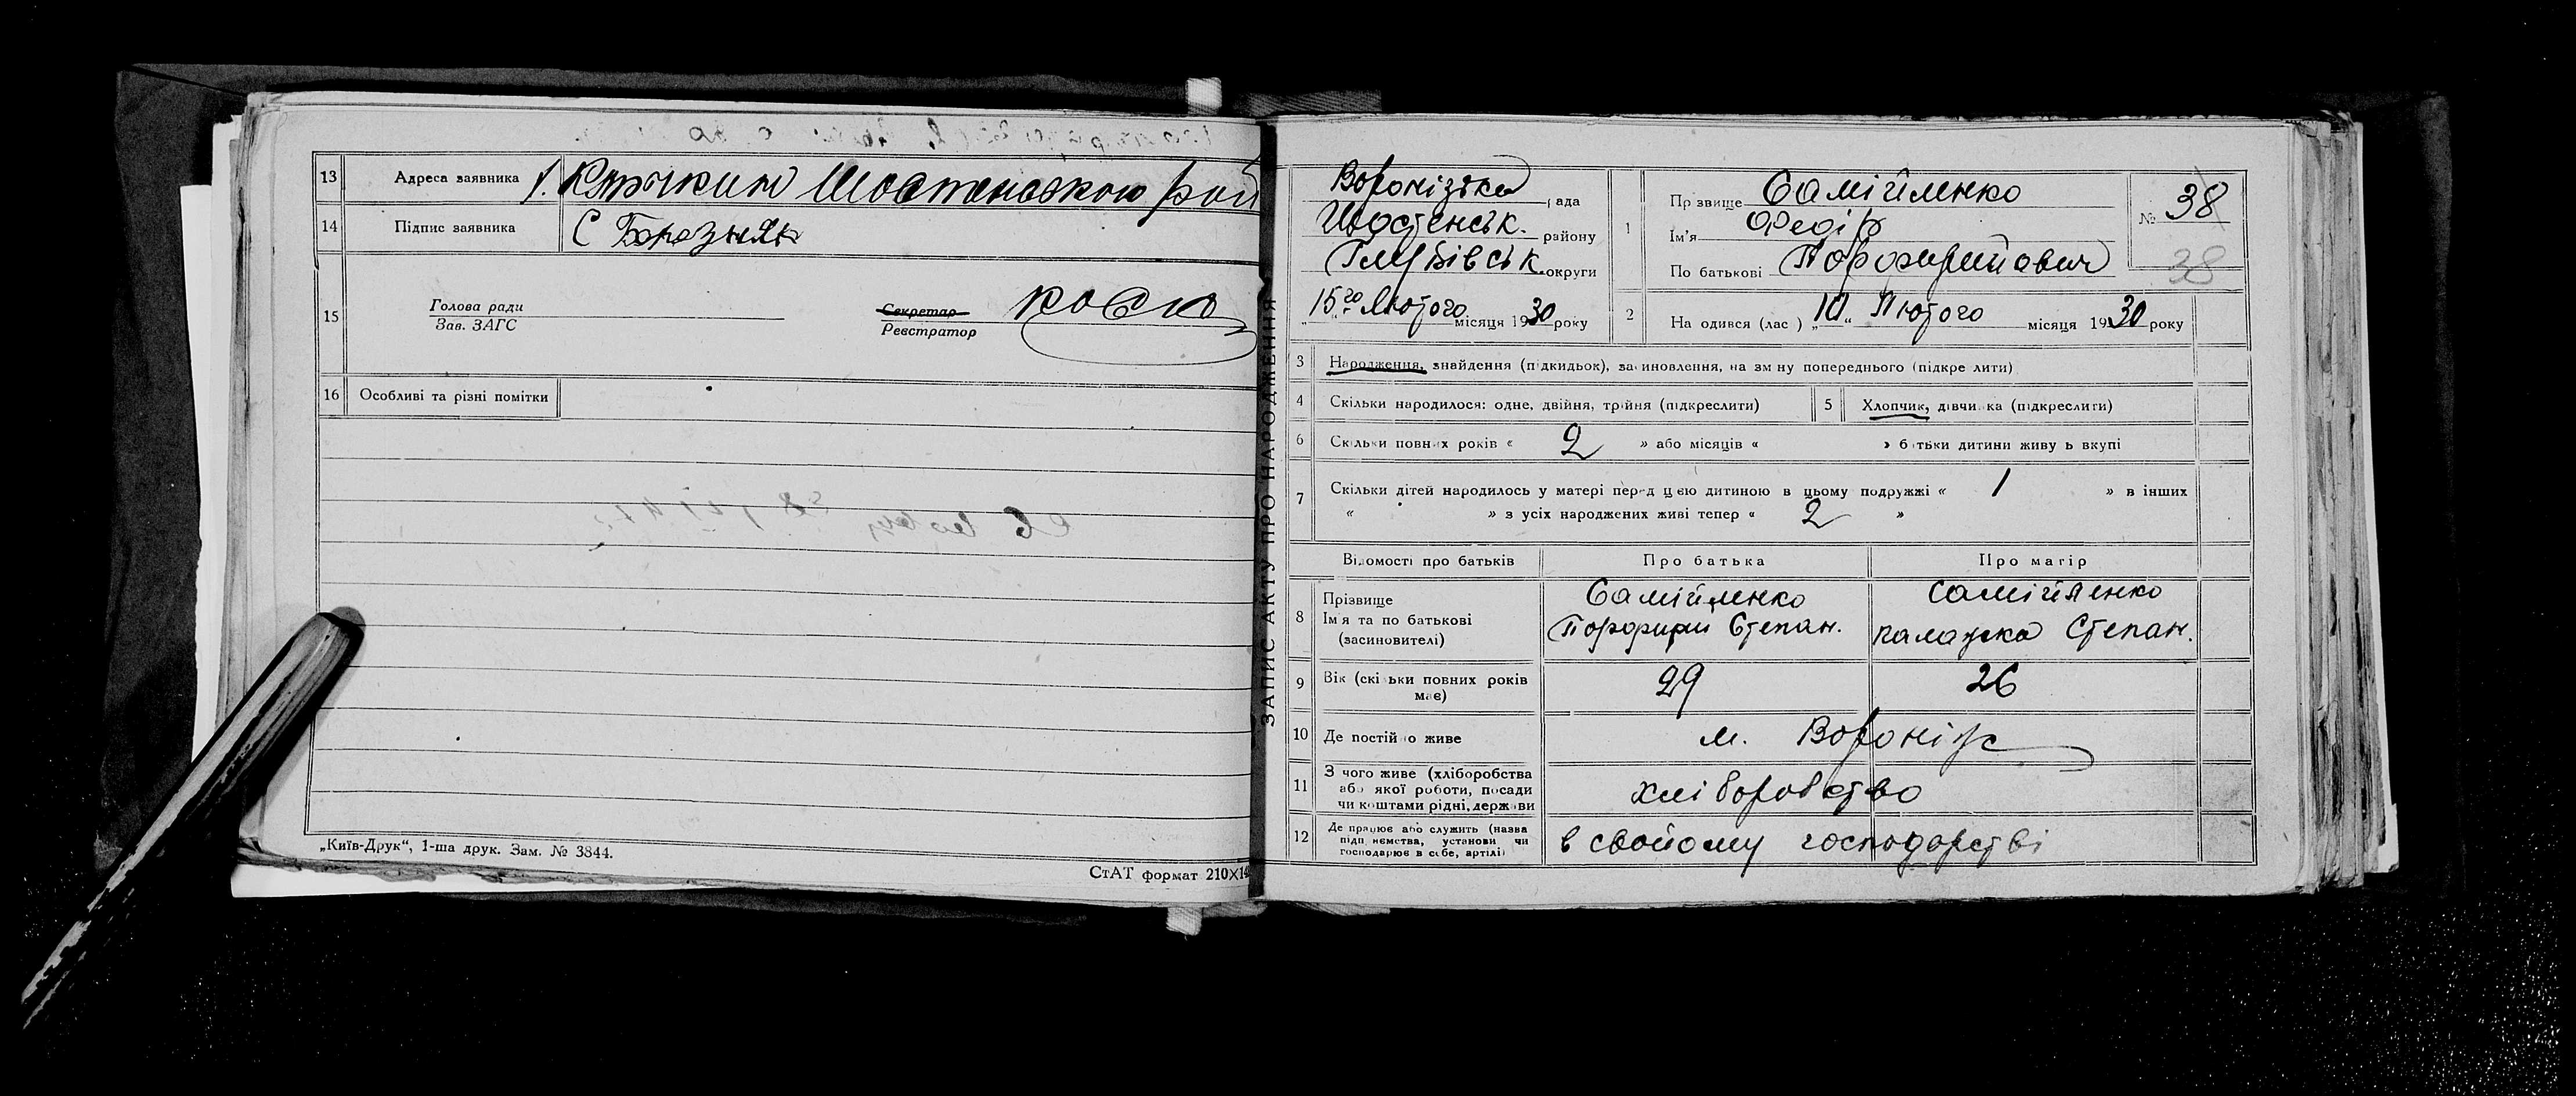 13 Адреса заявника Шостенського рай
14 Підпис заявника С
15 Голова ради
Зав. ЗАГС
Секретар
Реєстратор
16 Особливі та різні помітки
„Київ-Друк“, 1-ша друк. Зам. № 3844.
СтАТ формат 210×14
ЗАПИС АКТУ ПРО НАРОДЖЕННЯ
Воронізька рада
Шостенськ. району
Глухівськ. округи
„15го“ Лютого місяця 1930 року
1 Прізвище Самійленко
Ім'я Федір
По батькові Порфирийович
№ 38
38
2 Народився (лась) „10“ Лютого місяця 1930 року
3 Народження, знайдення (підкидьок), засиновлення, на зміну попереднього (підкреслити)
4 Скільки народилося: одне, двійня, трійня (підкреслити)
5 Хлопчик, дівчинка (підкреслити)
6 Скільки повних років « 2 » або місяців « » батьки дитини живуть вкупі
7 Скільки дітей народилось у матері перед цією дитиною в цьому подружжі « 1 » в інших
« » з усіх народжених живі тепер « 2 »
Відомості про батьків Про батька Про матір
8 Прізвище Самійленко Самійленко
Ім'я та по батькові Порфирий Степан. Палажка Степан.
(засиновителі)
9 Вік (скільки повних років має) 29 26
10 Де постійно живе м. Вороніж
11 З чого живе (хліборобства
або якої роботи, посади
чи коштами рідні, держави
хліборобство
12 Де працює або служить (назва
підприємства, установи чи
господарює в себе, артілі)
в свойому господарстві